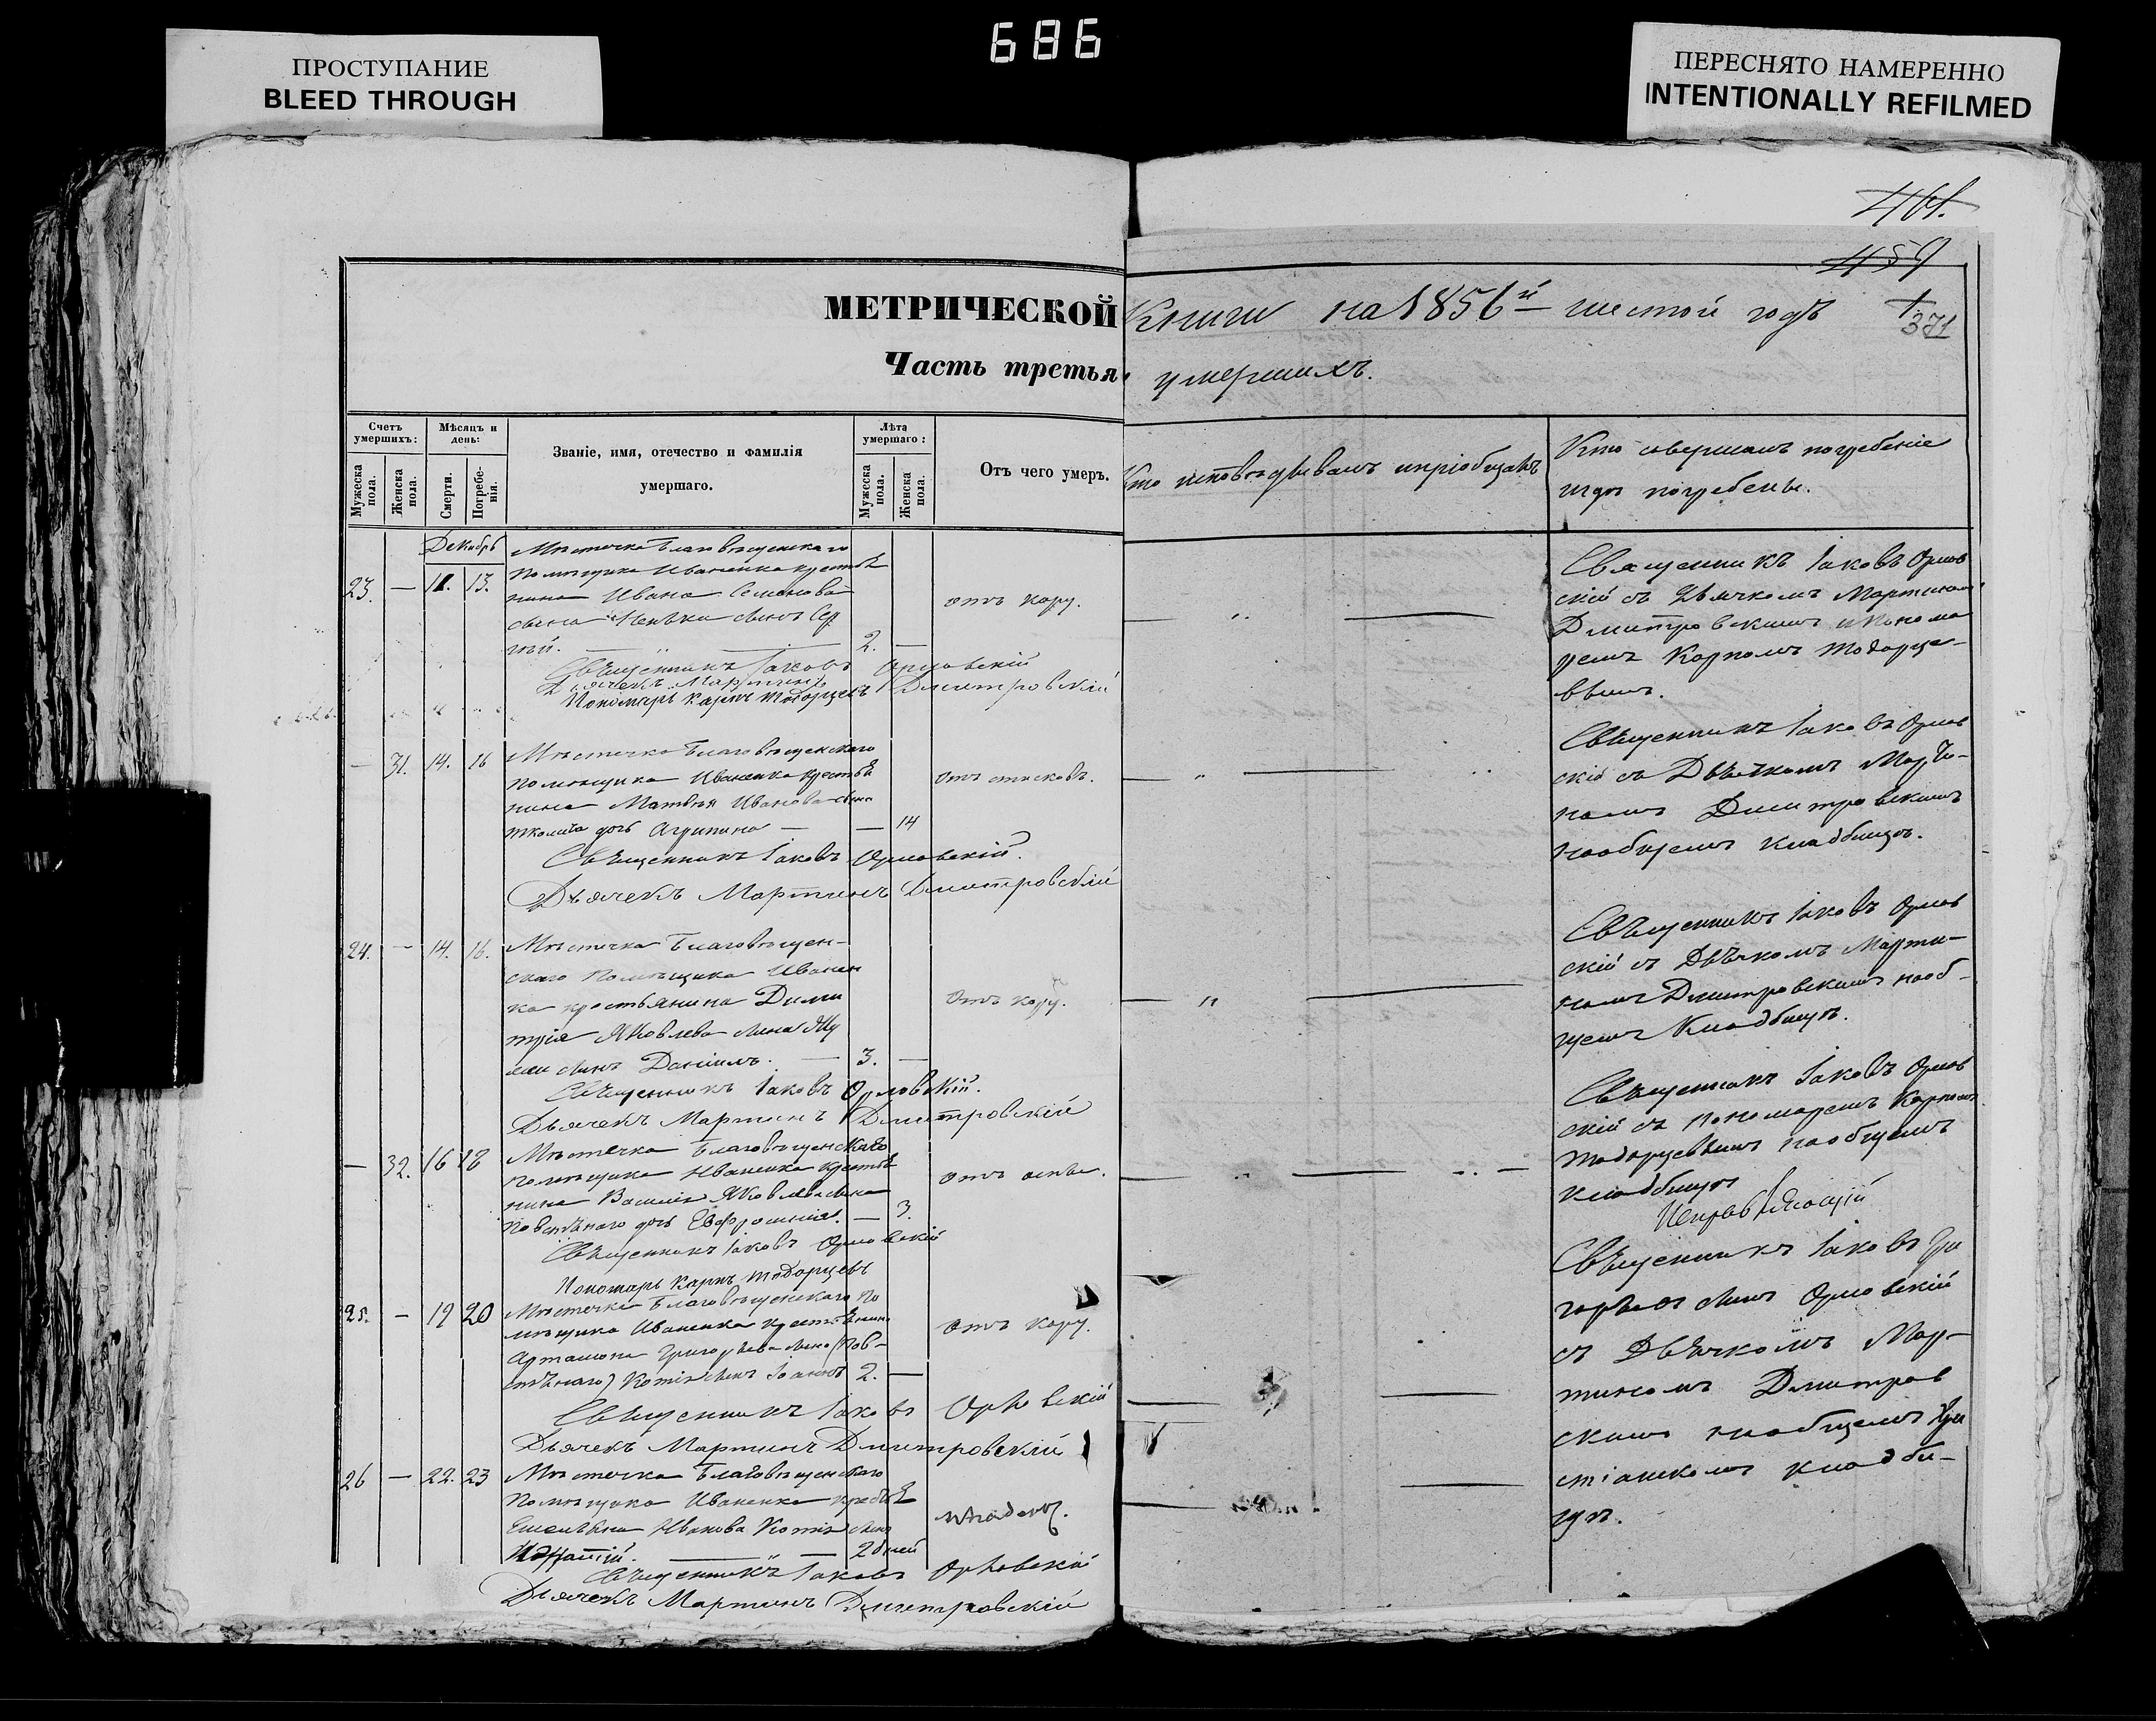 686
ПРОСТУПАНИЕ
BLEED THROUGH
ПЕРЕСНЯТО НАМЕРЕННО
INTENTIONALLY REFILMED
461.
459
371
МЕТРИЧЕСКОЙ Книги на 1856й шестой годъ
Часть третья умершихъ.
Счетъ умершихъ:
Мужеска пола.
Женска пола.
Мѣсяцъ и день:
Смерти.
Погребенія.
Званіе, имя, отечество и фамилія
умершаго.
Лѣта умершаго:
Мужеска пола.
Женска пола.
Отъ чего умеръ.
Кто исповѣдывалъ и пріобщалъ
Кто совершалъ погребеніе
и гдѣ погребены.
Декабрь
23. — 11. 13.
Мѣстечка Благовѣщенскаго
помѣщика Иваненка крестья
нина Ивана Семенова
сына сынъ Сер
гій. — 2. —
отъ кору.
Священникъ Іаковъ Орловскій
Дьячекъ Мартинъ Дмитровскій
Пономарь Карпъ Тодорцевъ
Священникъ Іаковъ Орлов
скій съ Дьячкомъ Мартиномъ
Дмитровскимъ и Понома
ремъ Карпомъ Тодорце-
вымъ.
— 31. 14. 16
Мѣстечка Благовѣщенскаго
помѣщика Иваненка крестья
нина Матвѣя Иванова сына
дочь Агрипина — — 14
отъ
Священникъ Іаковъ Орловскій.
Дьячекъ Мартинъ Дмитровскій
Священникъ Іаковъ Орлов
скій съ Дьячкомъ Марти-
номъ Дмитровскимъ
на общемъ кладбищѣ.
24. — 14. 16.
Мѣстечка Благовѣщен-
скаго помѣщика Иванен
ка крестьянина Дими
трія Яковлева сына
сынъ Даніилъ. — 3. —
отъ кору.
Священникъ Іаковъ Орловскій.
Дьячекъ Мартинъ Дмитровскій
Священникъ Іаковъ Орлов
скій съ Дьячкомъ Марти-
номъ Дмитровскимъ на об-
щемъ Кладбищѣ.
— 32. 16 18
Мѣстечка Благовѣщенскаго
помѣщика Иваненка крестья
нина Василія Яковлева сына
дочь Евфросинія. — 3.
отъ оспы.
Священникъ Іаковъ Орловскій
Пономарь Карпъ Тодорцевъ
Священникъ Іаковъ Орлов
скій съ пономаремъ Карпомъ
Тодорцевымъ на общемъ
кладбищѣ
25. — 19 20
Мѣстечка Благовѣщенскаго по
мѣщика Иваненка крестьянина
Артамона Григорьева сына
сынъ Іоаннъ 2. —
отъ кору.
Священникъ Іаковъ Орловскій
Дьячекъ Мартинъ Дмитровскій
Священникъ Іаковъ Гри
горьевъ сынъ Орловскій
съ Дьячкомъ Мар-
тиномъ Дмитров
скимъ на общемъ Хри
стіанскомъ кладби-
щѣ.
26 — 22. 23
Мѣстечка Благовѣщенскаго
помѣщика Иваненка
Емельяна Иванова сынъ
2 дней
Священникъ Іаковъ Орловскій
Дьячекъ Мартинъ Дмитровскій